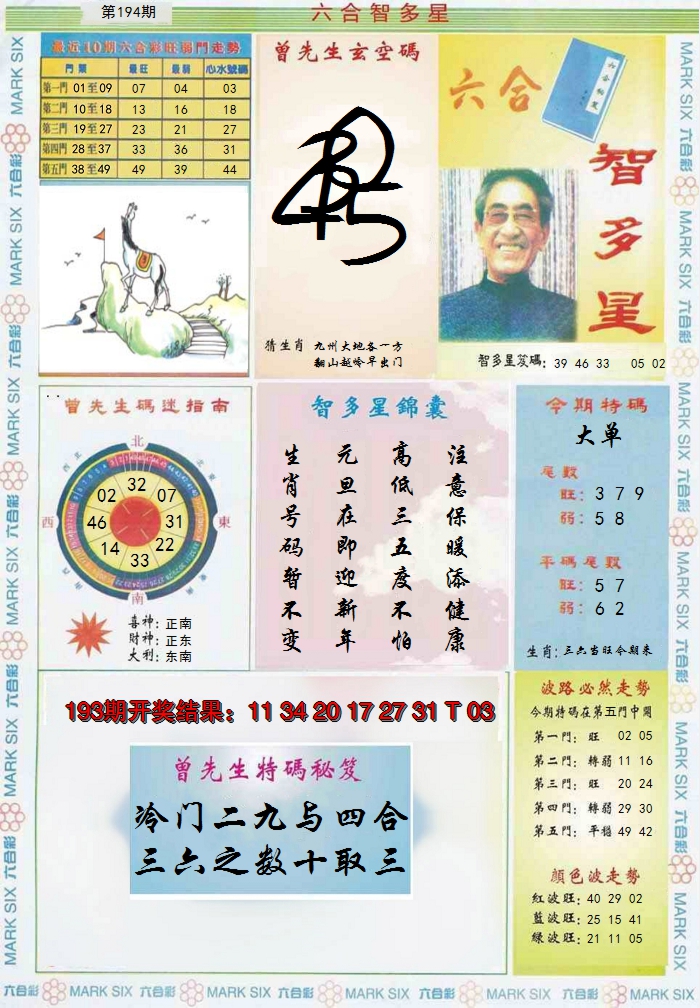 第194期
六合智多星
最近10期六合彩旺弱門走勢
門類 最旺 最弱 心水號碼
第一門 01至09 07 04 03
第二門 10至18 13 16 18
第三門 19至27 23 21 27
第四門 28至37 33 36 31
第五門 38至49 49 39 44
曾先生玄空碼
猜生肖 九州大地各一方
翻山越岭早出门
六合
智多星
智多星笈碼: 39 46 33 05 02
曾先生碼迷指南
北
東
南
西
32
07
31
22
33
14
46
02
喜神: 正南
财神: 正东
大利: 东南
智多星錦囊
注意保暖添健康
高低三五度不怕
元旦在即迎新年
生肖号码暂不变
今期特碼
大单
尾数
旺: 3 7 9
弱: 5 8
平碼尾数
旺: 5 7
弱: 6 2
生肖: 三六当旺令期来
193期开奖结果：11 34 20 17 27 31 T 03
曾先生特碼秘笈
冷门二九与四合
三六之数十取三
波路必然走勢
今期特碼在第五門中開
第一門: 旺 02 05
第二門: 轉弱 11 16
第三門: 旺 20 24
第四門: 轉弱 29 30
第五門: 平穩 49 42
顏色波走勢
紅波旺: 40 29 02
藍波旺: 25 15 41
綠波旺: 21 11 05
六合彩 MARK SIX